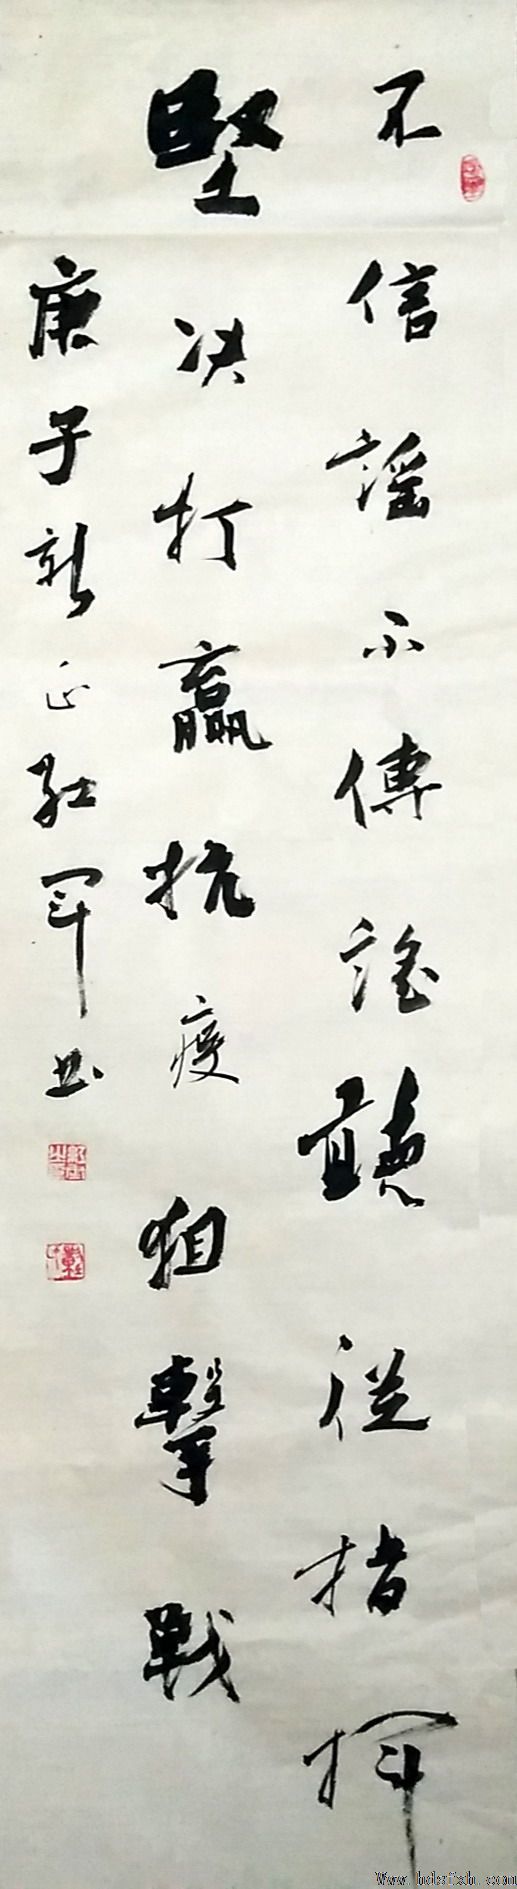 不信謠不傳謠聽從指揮
堅决打贏抗疫狙擊戰
庚子新正紅軍书
Www.hdsfxh.com